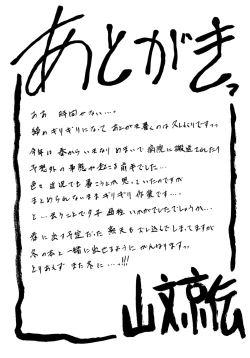 あとがきっ
ああ 時間がない…。
締めぎりぎりになって あとがき書くのは久しぶりですっ
今年は 春から いきなり めまいで 病院に搬送されたり
予想外の事態が起こる前半でした…
色々 近況でも 書こうとか思っていたのですが
まとめられないまま ぎりぎり作業です…。
と…言うことで 今回 いかがでしたでしょうか…
春に出す予定だった 新刊も ズレ込んでしまってますが
冬の本と一緒に出せるように がんばりますっ
とりあえず また冬に…っ!!!
山文京伝